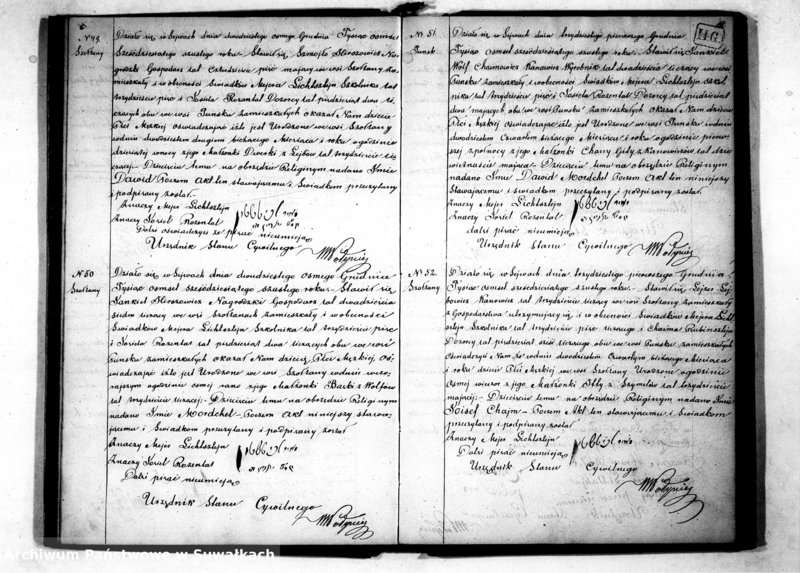 N 49
Szołtany
Działo się w Sejwach dnia dwudziestego osmego Grudnia Tysiąc osmset
sześćdziesiątego szóstego roku. Stawił się
Gospodarz lat czterdzieści pięć mający we wsi Szołtany za-
mieszkały w obecności Świadków Mejera Lichtsztejn Szkolnika lat
trzydzieści pięć i Josiela Rozental Dozorcy lat pięćdziesiąt dwa li-
czących obu we wsi Puńsku zamieszkałych okazał Nam dziecię
Płci Męzkiej oświadczając iż to jest Urodzone we wsi Szołtany
w dniu dwudziestem drugim bieżącego Miesiąca i roku o godzinie
dziewiątej w nocy z jego Małżonki Dweski z Lejbów lat trzydzieści
liczącej. Dziecięciu temu na obrzędzie Religijnym nadano Imie
Dawid Poczem Akt ten stawającemu i Świadkom przeczytany
i podpisany został.
Znaczy Mejer Lichtsztejn
Znaczy Josiel Rozental
Dalsi oświadczyli że pisać nieumieją
Urzędnik Stanu Cywilnego
N 50
Szołtany
Działo się w Sejwach dnia dwudziestego osmego Grudnia
Tysiąc osmset sześćdziesiątego szóstego roku. Stawił się
Jankiel Nagoszki Gospodarz lat dwadzieścia
siedm liczący we wsi Szołtanach zamieszkały i w obecności
Świadków Mejera Lichtsztejn Szkolnika lat trzydzieści pięć
i Josiela Rozental lat pięćdziesiąt dwa liczących obu we wsi
Puńsku zamieszkałych okazał Nam dziecię Płci Męzkiej, Oś-
wiadczając iż to jest Urodzone we wsi Szołtany w dniu wczo-
rajszym o godzinie osmej rano z jego Małżonki Baski z Wolfów
lat trzydzieści liczącej. Dziecięciu temu na obrzędzie Religijnym
nadano Imie Mordchel. Poczem Akt niniejszy stawa-
jącemu i Świadkom przeczytany i podpisany został
Znaczy Mejer Lichtsztejn
Znaczy Josiel Rozental
Dalsi pisać nieumieją
Urzędnik Stanu Cywilnego
N 51
Puńsk
116
Działo się w Sejwach dnia trzydziestego pierwszego Grudnia
Tysiąc osmset sześćdziesiątego szóstego roku. Stawił się Jankiel
Wolf Chaimowicz Kanowicz Wyrobnik lat dwadzieścia liczący we wsi
Puńsku zamieszkały i w obecności Świadków Mejera Lichtsztejn szkol-
nika lat trzydzieści pięć i Josiela Rozental Dozorcy lat pięćdziesiąt
dwa mających obu we wsi Puńsku zamieszkałych okazał Nam dziecię
Płci Męzkiej oświadczając iż to jest Urodzone we wsi Puńsku w dniu
dwudziestem czwartym bieżącego Miesiąca i roku o godzinie pierw-
szej z północy z jego Małżonki Chany Gity z Kanowiczów lat dzie-
więtnaście mającej. Dziecięciu temu na obrzędzie Religijnym
nadano Imie Dawid Mordchel Poczem Akt ten niniejszy
Stawającemu i świadkom przeczytany i podpisany został.
Znaczy Mejer Lichtsztejn
Znaczy Josiel Rozental
dalsi pisać nieumieją
Urzędnik Stanu Cywilnego
N 52.
Szołtany
Działo się w Sejwach dnia trzydziestego pierwszego Grudnia
Tysiąc osmset sześćdziesiątego szóstego roku. Stawił się Lejzer Lej-
bowicz Kanowicz lat trzydzieści liczący we wsi Szołtany zamieszkały
z Gospodarstwa utrzymujący się i w obecności Świadków Mejera Licht-
sztejn Szkolnika lat trzydzieści pięć liczącego i Chaima Rubinsztejn
Dozorcy lat pięćdziesiąt sześć liczącego obu we wsi Puńsku zamieszkałych
Oświadczył Nam że w dniu dwudziestem czwartym bieżącego Miesiąca
i roku dziecie Płci Męzkiej we wsi Szołtany Urodzone o godzinie
Osmej wieczór z jego Małżonki z Szymelów lat trzydzieści
mającej. Dziecięciu temu na obrzędzie Religijnym nadano Imie
Josiel Chajm. Poczem Akt ten stawającemu i Świadkom
przeczytany i podpisany został
Znaczy Mejer Lichtsztejn
Dalsi pisać nieumieją
Urzędnik Stanu Cywilnego
Archiwum Państwowe w Suwałkach